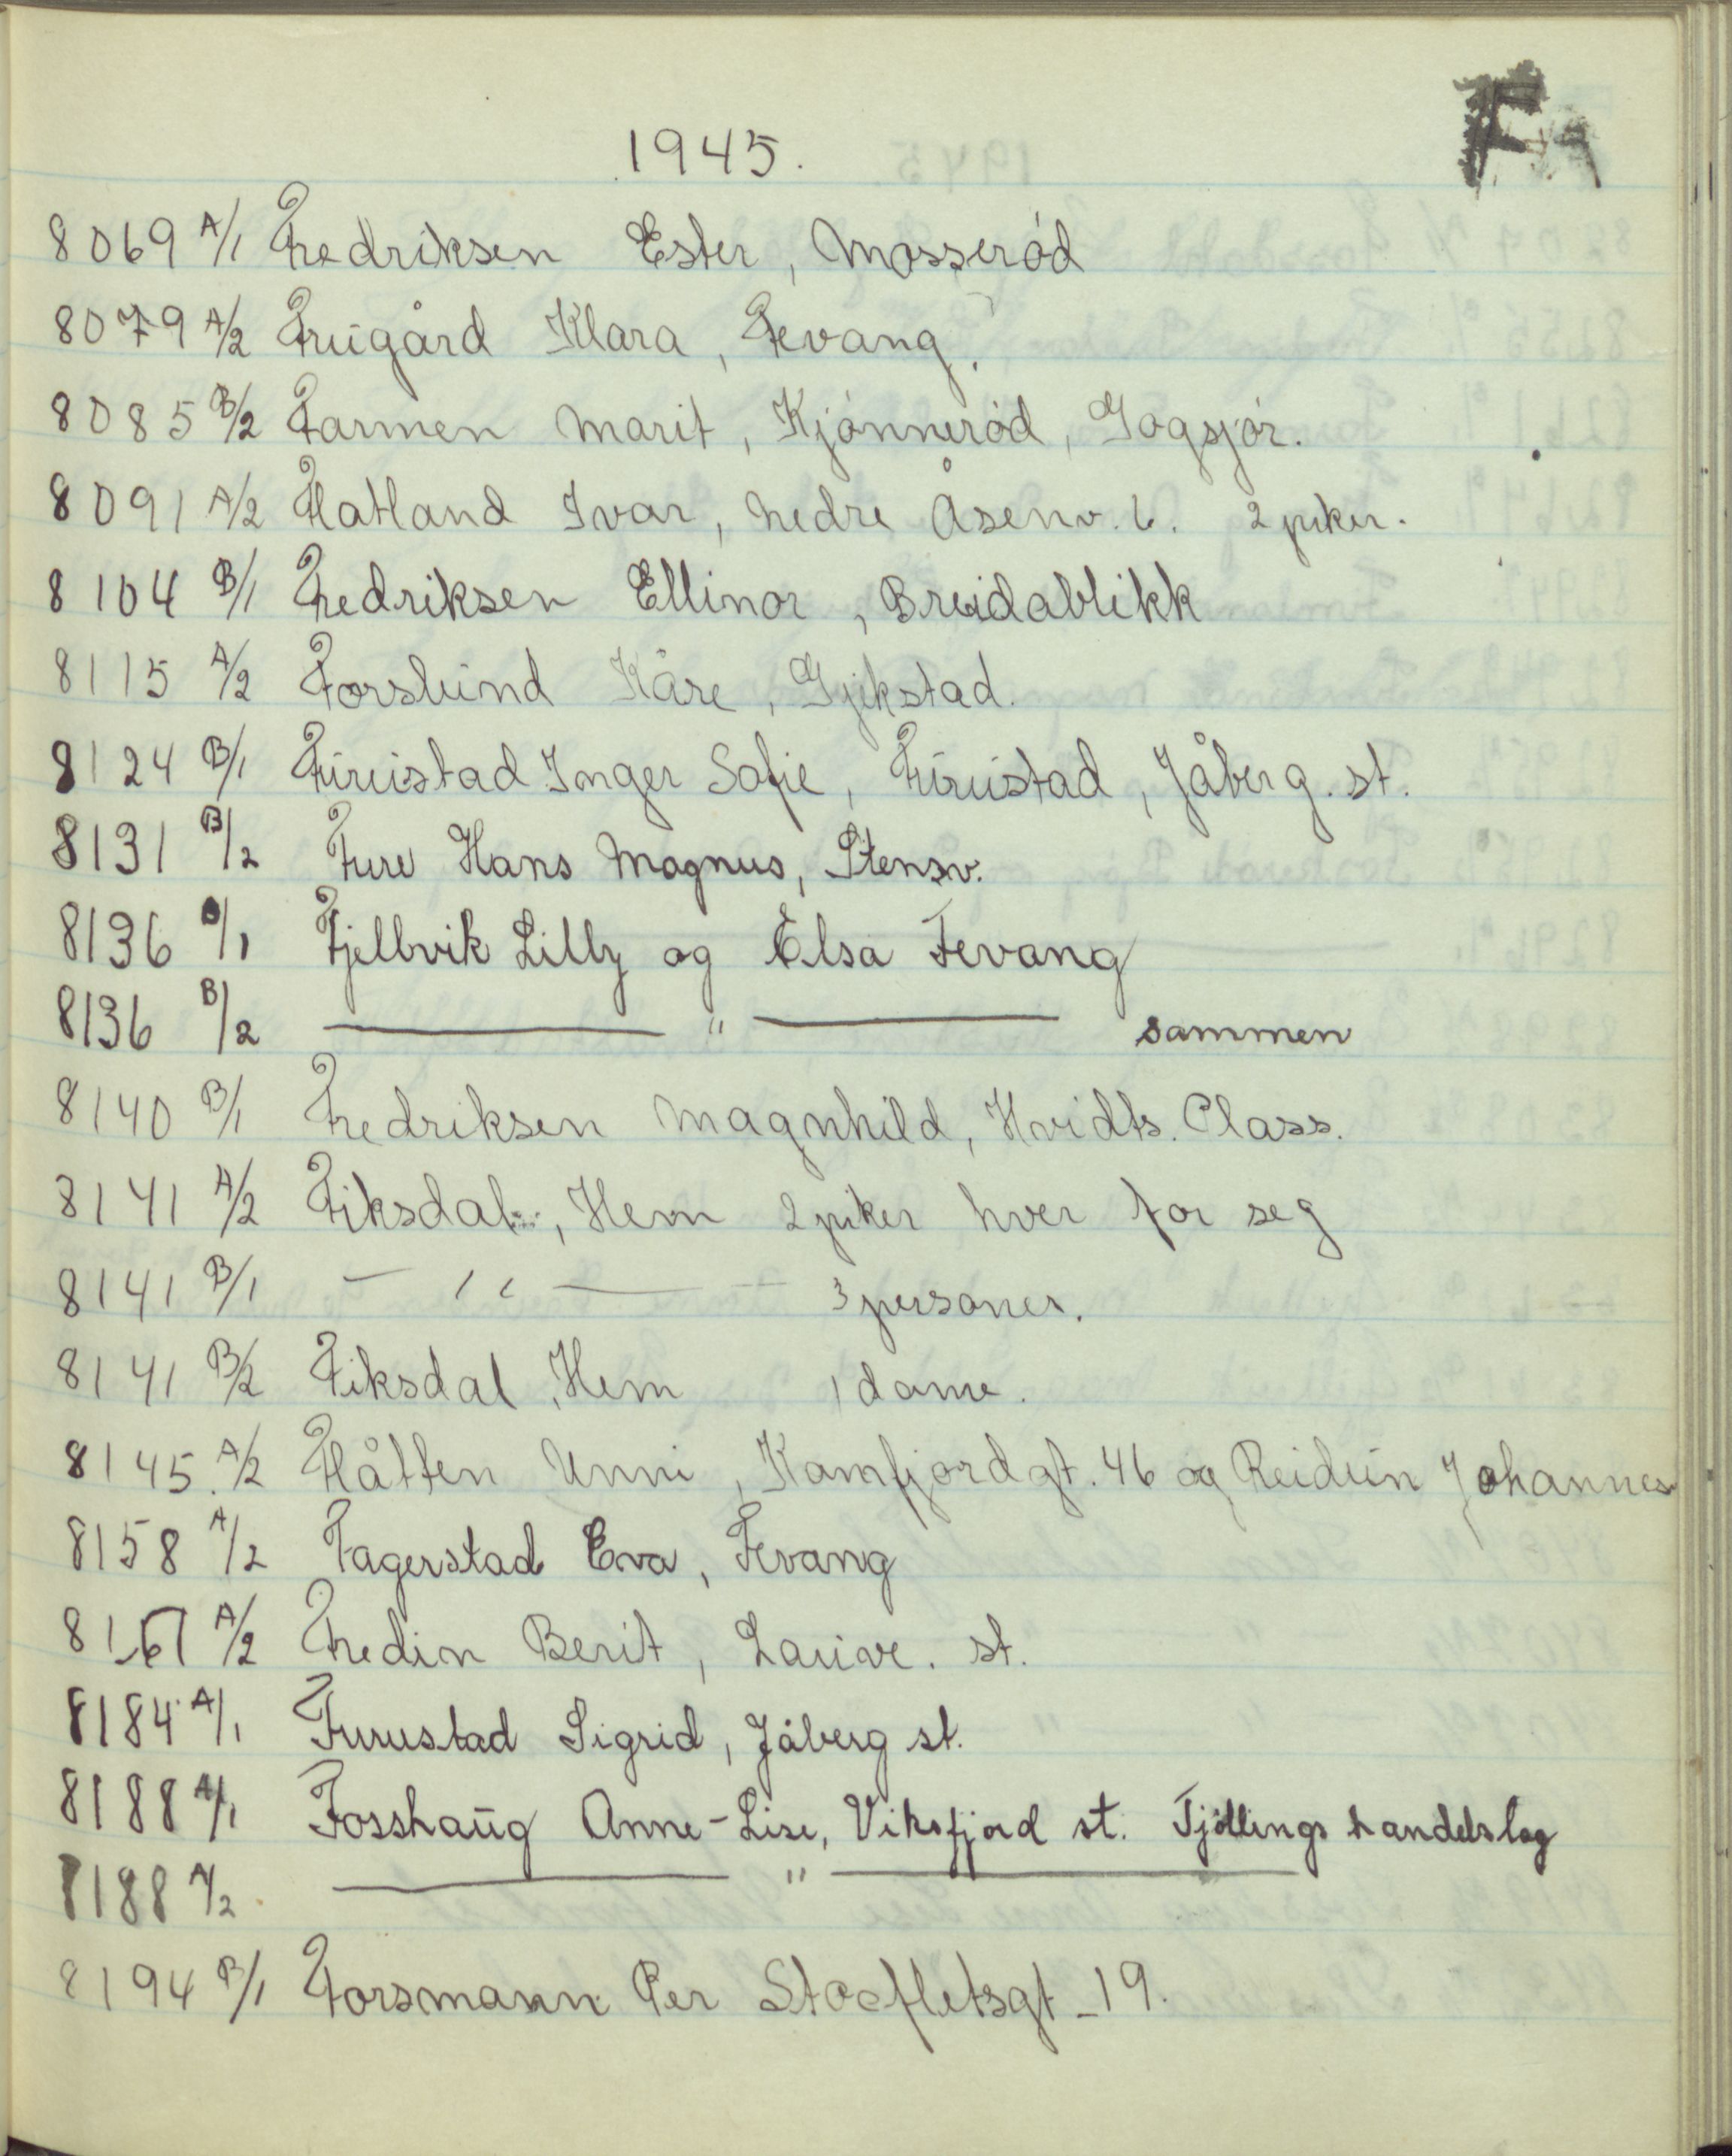 F
1945.
8069 A/1 Fredriksen Ester, Mosserød
8079 A/2 Frugård Klara, Fevang.
8085 B/2 Farmen Marit, Kjønnerød, Gogsjør.
8091 A/2 Flatland Ivar, Nedre Åsenv. 6. 2 piker.
8104 B/1 Fredriksen Ellinor, Breidablikk
8115 A/2 Forslund Kåre, Gjekstad.
8124 B/1 Furustad Inger Sofie, Furustad, Jåberg. st.
8131 B/2 Fure Hans Magnus, Stensv.
8136 B/1 Fjellvik Lilly og Elsa Fevang
8136 B/2 — " — sammen
8140 B/1 Fredriksen Magnhild, Hvidts. Class.
8141 A/2 Fiksdal, Hem 2 piker hver for seg
8141 B/1 — " — 3 personer.
8141 B/2 Fiksdal, Hem 1 dame.
8145. A/2 Flåtten Unni, Kamfjordgt. 46 og Reidun Johannes
8158 A/2 Fagerstad Eva, Fevang
8161 A/2 Fredin Berit, Lauve. st.
8184 A/1 Furustad Sigrid, Jåberg st.
8188 A/1 Fosshaug Anne-Lise, Viksfjord st. Tjøllings handelslag
8188 A/2 — " —
8194 B/1 Forsmann Per Stocfletsgt - 19.